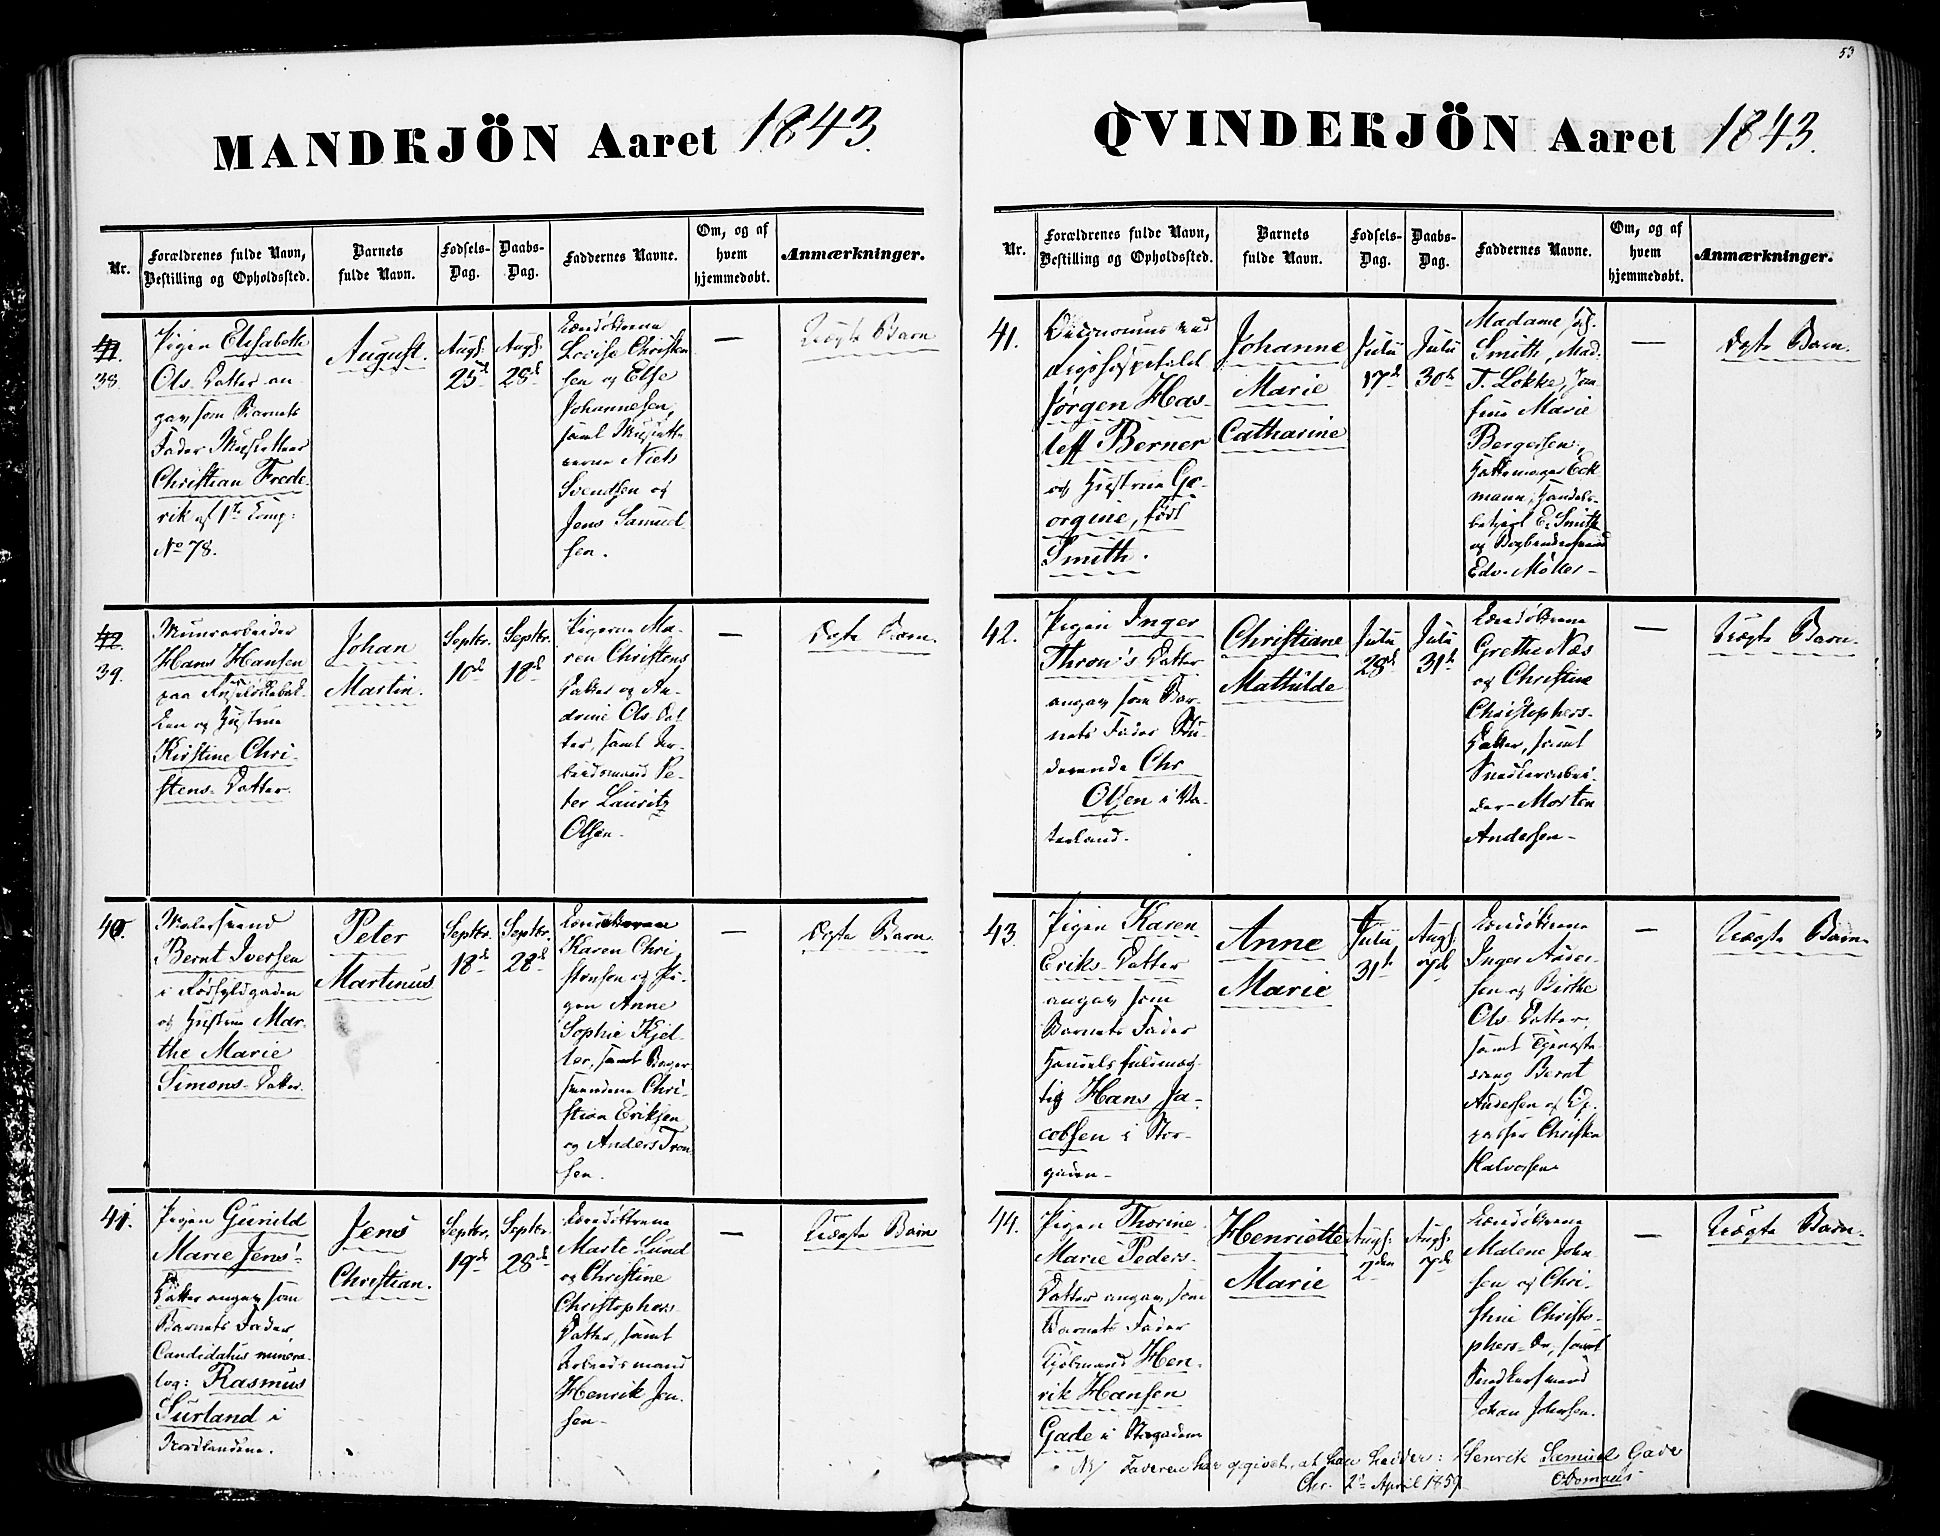 53
MANDKJÖN Aaret 1843.
Nr.
Forældrenes fulde Navn,
Bestilling og Opholdssted.
Barnets
fulde Navn.
Fødsels-
Dag.
Daabs-
Dag.
Faddernes Navne.
Om, og af
hvem
hjemmedøbt.
Anmærkninger.
38.
Pigen Elisabeth
Ols-Datter an-
gav, som Barnets
Fader Musketteer
Christian Frede-
rik af 1te Comp:
No 78.
August.
Augs.
25d
Augs.
28d
Lovise Christen
sen og Else
Johannesen,
samt Musquette
rerne Niels
Svendsen og
Jens Samuel
sen.
—
Uægte Barn
42.
39.
Muurarbeider
Hans Hansen
paa
og Hustrue
Kirstine Chri-
stens-Datter.
Johan
Martin.
Septbr.
10d
Septbr.
18d
Pigerne Ma-
ren Christens
Datter og An-
drine Ols Dat
ter, samt Ar-
beidsmand Pe-
ter Lauritz
Olsen.
—
Ægte Barn.
40.
Malersvend
Bernt Iversen
i Rødfyldgaden
og Hustrue Mar-
the Marie
Simons-Datter.
Peter
Martinus
Septbr.
18d
Septbr.
28d
Karen Chri-
stensen og Pi-
gen Anne
Sophie Kjel-
ler, samt Bager
svendene Chri-
stian Eriksen
og Anders Tron
sen.
—
Ægte Barn.
41.
Pigen Gunild
Marie Jens'-
Datter angav som
Barnets Fader,
Candidatus minera-
log: Rasmus
Surland i
Nordlandene.
Jens
Christian.
Septbr.
19d
Septbr.
28d
Marte Lund
og Christine
Christophers-
Datter, samt
Arbeidsmand
Henrik Jen-
sen-
—
Uægte Barn
QVINDEKJÖN Aaret 1843.
Nr.
Forældrenes fulde Navn,
Bestilling og Opholdssted.
Barnets
fulde Navn.
Fødsels-
Dag.
Daabs-
Dag.
Faddernes Navne.
Om, og af
hvem
hjemmedøbt.
Anmærkninger.
41.
Oeconomus ved
Jørgen Has-
leff Berner
og Hustrue Ge-
orgine, født
Smith.
Johanne
Marie
Catharine
Juli
17d
Juli
30te
Madame
Smith, Mad.
T. Løkke, Jom
frue Marie
Bergersen,
Hattemager Eck
mann, Handels-
betjent E. Smith
og Bogbindersvend
Edv. Møller-
—
Ægte Barn.
42.
Pigen Inger
Thron's Datter
angav som Bar-
nets Fader Stu-
derende Chr
Olsen i Va-
terland.
Christiane
Mathilde
Juli
28d
Juli
31te
Grethe Næs
og Christine
Christophers-
Datter, samt
Snedkerarbei-
der-Morten
Andersen-
—
Uægte Barn.
43.
Pigen Karen
Eriks-Datter
angav som
Barnets Fader
Handelsfuldmæg-
tig Hans Ja-
cobsen i Stor-
gaden-
Anne
Marie
Juli
31te
Augs.
7d
Inger Ander-
sen og Birthe
Ols-Datter,
samt Tjeneste-
dreng Bernt
Andersen og Op-
passer Christen
Halvorsen
—
Uægte Barn.
44.
Pigen Thorine
Marie Peders-
Datter angav, som
Barnets Fader
Kjøbmand Hen-
rik Hansen
Gade i Storgaden
Henriette
Marie
Augs.
2den
Augs.
7d
Malene John
sen og Chri-
stine Christo-
phers-Dr, samt
Snedkersvend
Johan Johnsen.
—
Uægte Barn.
Faderen har opgivet, at han hedder: Henrik Samuel Gade
Chr. 2d April 1859